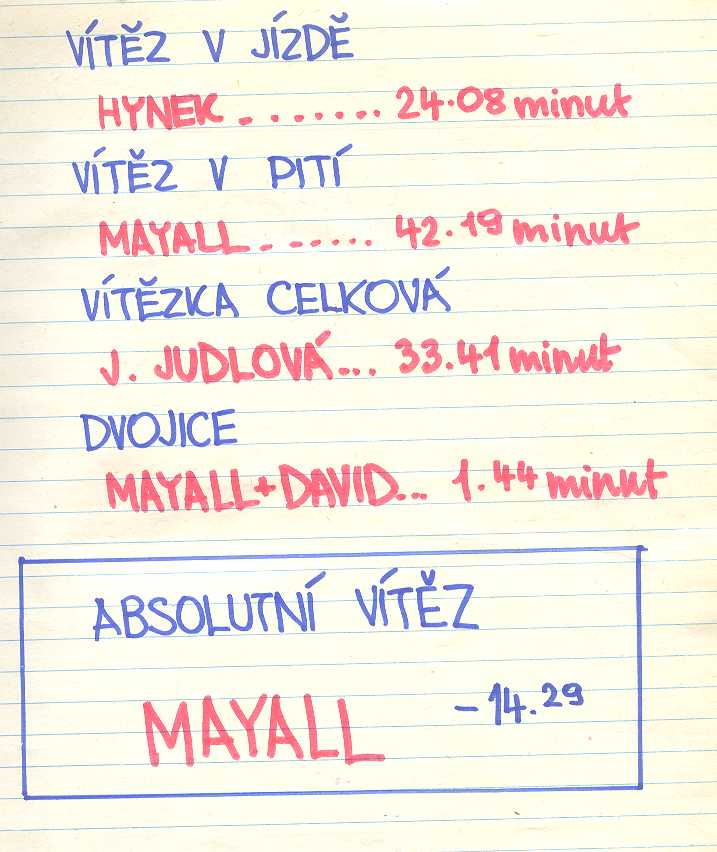 VÍTĚZ V JÍZDĚ
HYNEK ....... 24.08 minut
VÍTĚZ V PITÍ
MAYALL ...... 42.19 minut
VÍTĚZKA CELKOVÁ
J. JUDLOVÁ... 33.41 minut
DVOJICE
MAYALL+DAVID... 1.44 minut
ABSOLUTNÍ VÍTĚZ
MAYALL -14.29